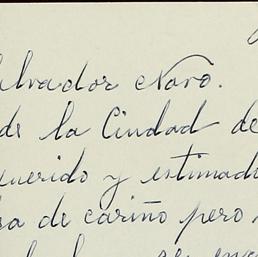 alvador Novo.
de la Ciudad de
querido y estimado
sa de cariño pero
se